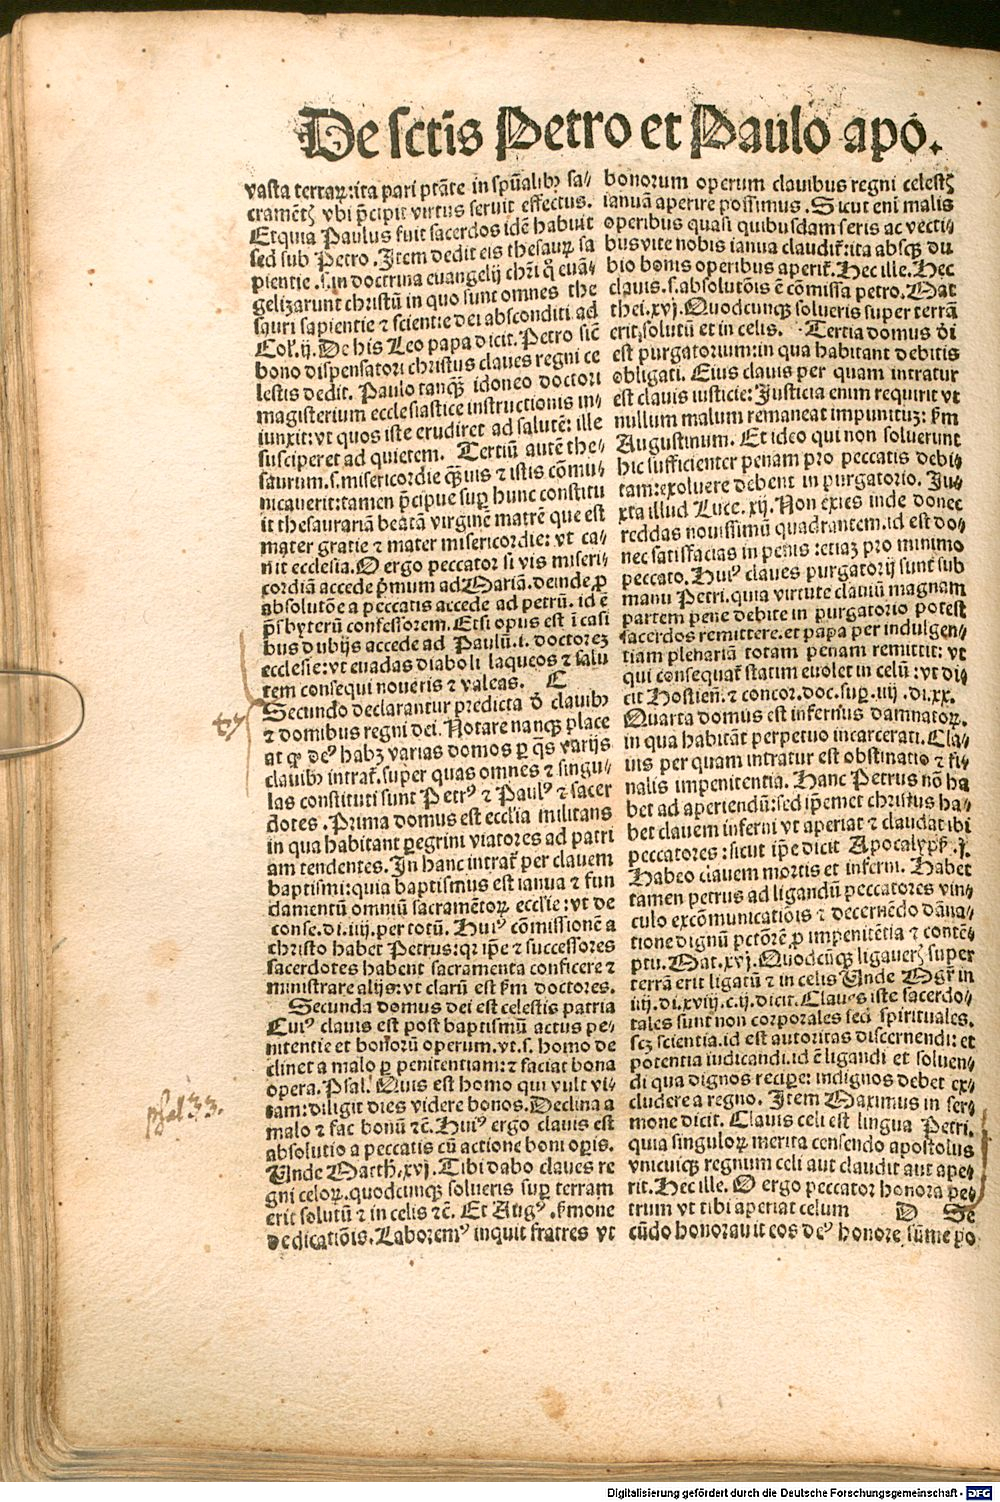 De sctis Petro et Paulo apo.
vasta terraꝝ: ita pari ptãte in spũalibꝫ sa⸗
cramẽtꝭ vbi p̃cipit virtus seruit effectus.
Et quia Paulus fuit sacerdos idẽ habuit
sed sub Petro. Item dedit eis thesauꝝ sa
pientie .s. in doctrina euangelij chr̃i q̇ euã⸗
gelizarunt christũ in quo sunt omnes the
sauri sapientie ⁊ scientie dei absconditi ad
Col̃. ij. De his Leo papa dicit. Petro sic̃
bono dispensatori christus claues regni ce
lestis dedit. Paulo tanqꝫ̃ idoneo doctori
magisterium ecclesiastice instructionis in⸗
iunxit: vt quos iste erudiret ad salutẽ: ille
susciperet ad quietem. Tertiũ autẽ the⸗
saurum .s. misericordie qꝫ̃uis ⁊ istis cõmu⸗
nicauerit: tamen p̃cipue suꝑ hunc constitu
it thesaurariã beatã virginẽ matrẽ que est
mater gratie ⁊ mater misericordie: vt ca⸗
nit ecclesia. O ergo peccator si vis miseri
cordiã accede p̃mum ad Mariã. deinde ꝓ
absolutõe a peccatis accede ad petrũ. id ẽ
p̃sbyterũ confessorem. Et si opus est ĩ casi
bus dubijs accede ad Paulũ .i. doctoreꝫ
ecclesie: vt euadas diaboli laqueos ⁊ salu
tem consequi noueris ⁊ valeas. C
Secundo declarantur predicta ð clauibꝫ
⁊ domibus regni dei. Notare nanqꝫ place
at qꝫ deꝰ habꝫ varias domos ꝑ q̃s varijs
clauibꝫ intrat̃. super quas omnes ⁊ singu⸗
las constituti sunt Petrꝰ ⁊ Paulꝰ ⁊ sacer
dotes. Prima domus est ecclĩa militans
in qua habitant ꝑegrini viatores ad patri
am tendentes. In hanc intrat̃ per clauem
baptismi: quia baptismus est ianua ⁊ fun
damentũ omniũ sacramẽtoꝝ ecclĩe: vt de
conse. di. iiij. per totũ. Huiꝰ cõmissionẽ a
christo habet Petrus: qꝛ ip̃e ⁊ successores
sacerdotes habent sacramenta conficere ⁊
ministrare alijs: vt clarũ est ẝm doctores.
Secunda domus dei est celestis patria
Cuiꝰ clauis est post baptismũ actus pe⸗
nitentie et bonorũ operum. vt .s. homo de
clinet a malo ꝑ penitentiam: ⁊ faciat bona
opera. Psal. Quis est homo qui vult vi⸗
tam: diligit dies videre bonos. Declina a
malo ⁊ fac bonũ ⁊c̃. Huiꝰ ergo clauis est
absolutio a peccatis cũ actione boni oꝑis.
Unde Matth̃. xvj. Tibi dabo claues re
gni celoꝝ. quodcunqꝫ solueris suꝑ terram
erit solutũ ⁊ in celis ⁊c̃. Et Augꝰ. ẝmone
dedicatiõis. Laboremꝰ inquit fratres vt
bonorum operum clauibus regni celestꝭ
ianuã aperire possimus. Sicut eni malis
operibus quasi quibusdam seris ac vecti⸗
bus vite nobis ianua claudit̃: ita absqꝫ du
bio bonis operibus aperit̃. Hec ille. Hec
clauis .s. absolutõis ẽ cõmissa petro. Mat
thei. xvj. Quodcunqꝫ solueris super terrã
erit solutũ et in celis. Tertia domus ði
est purgatorium: in qua habitant debitis
obligati. Eius clauis per quam intratur
est clauis iusticie: Justicia enim requirit vt
nullum malum remaneat impunituꝫ: ẝm
Augustinum. Et ideo qui non soluerunt
hic sufficienter penam pro peccatis debi⸗
tam: exoluere debent in purgatorio. Ju⸗
xta illud Luce. xij. Non exies inde donec
reddas nouissimũ quadrantem. id est do⸗
nec satisfacias in penis: etiaꝫ pro minimo
peccato. Huiꝰ claues purgatorij sunt sub
manu Petri. quia virtute clauiũ magnam
partem pene debite in purgatorio potest
sacerdos remittere. et papa per indulgen⸗
tiam plenariã totam penam remittit: vt
qui consequat̃ statum euolet in celũ: vt di⸗
cit Hostieñ. ⁊ concor. doc. suꝑ. iiij. di. xx.
Quarta domus est infernus damnatoꝝ.
in qua habitãt perpetuo incarcerati. Cla⸗
uis per quam intratur est obstinatio ⁊ fi⸗
nalis impenitentia. Hanc Petrus nõ ha
bet ad aperiendũ: sed ip̃emet christus ha⸗
bet clauem inferni vt aperiat ⁊ claudat ibi
peccatores: sicut ip̃e dicit Apocalypẝ. j.
Habeo clauem mortis et inferni. Habet
tamen petrus ad ligandũ peccatores vin⸗
culo excõmunicatiõis ⁊ decernẽdo dãna⸗
tione dignũ pctõrẽ ꝓ impenitẽtia ⁊ contẽ⸗
ptu. Mat. xvj. Quodcũqꝫ ligauerꝭ super
terrã erit ligatũ ⁊ in celis Unde Mgr̃ in
iiij. di. xviij. c. ij. dicit. Claues iste sacerdo⸗
tales sunt non corporales sed spirituales.
scꝫ scientia. id est autoritas discernendi: et
potentia iudicandi. id ẽ ligandi et soluen⸗
di qua dignos reciꝑe: indignos debet ex⸗
cludere a regno. Item Maximus in ser⸗
mone dicit. Clauis celi est lingua Petri.
quia singuloꝝ merita censendo apostolus
vnicuiqꝫ regnum celi aut claudit aut ape⸗
rit. Hec ille. O ergo peccator honora pe⸗
trum vt tibi aperiat celum D Se
cũdo honorauit eos deꝰ honore sũme ꝓo
psal 33.
Digitalisierung gefördert durch die Deutsche Forschungsgemeinschaft - DFG